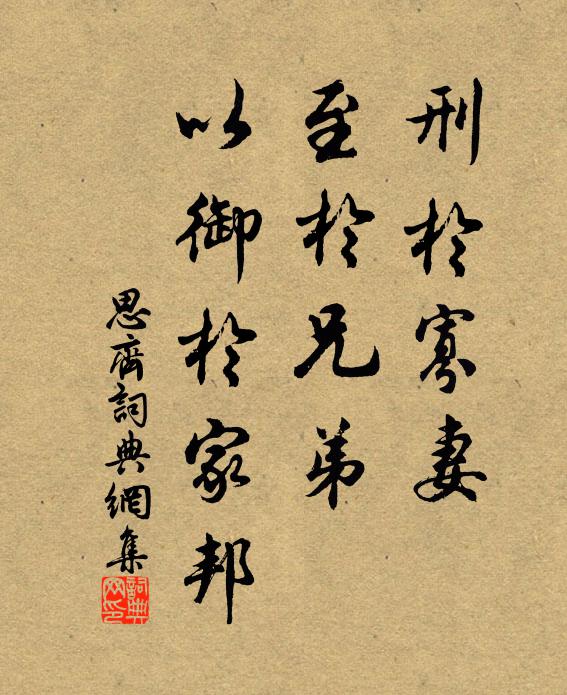 刑於寡妻
至於兄弟
以御於家邦
思齊詞典網集
詞典网印